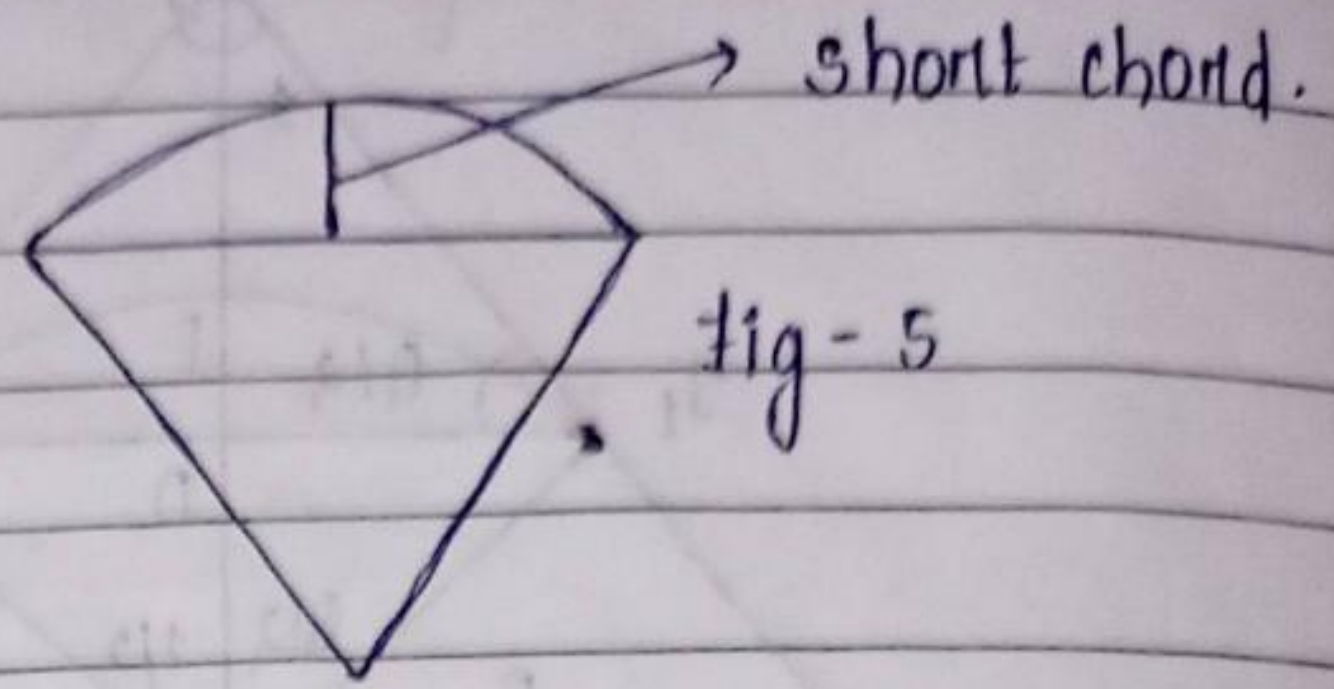 short chord.
fig - 5